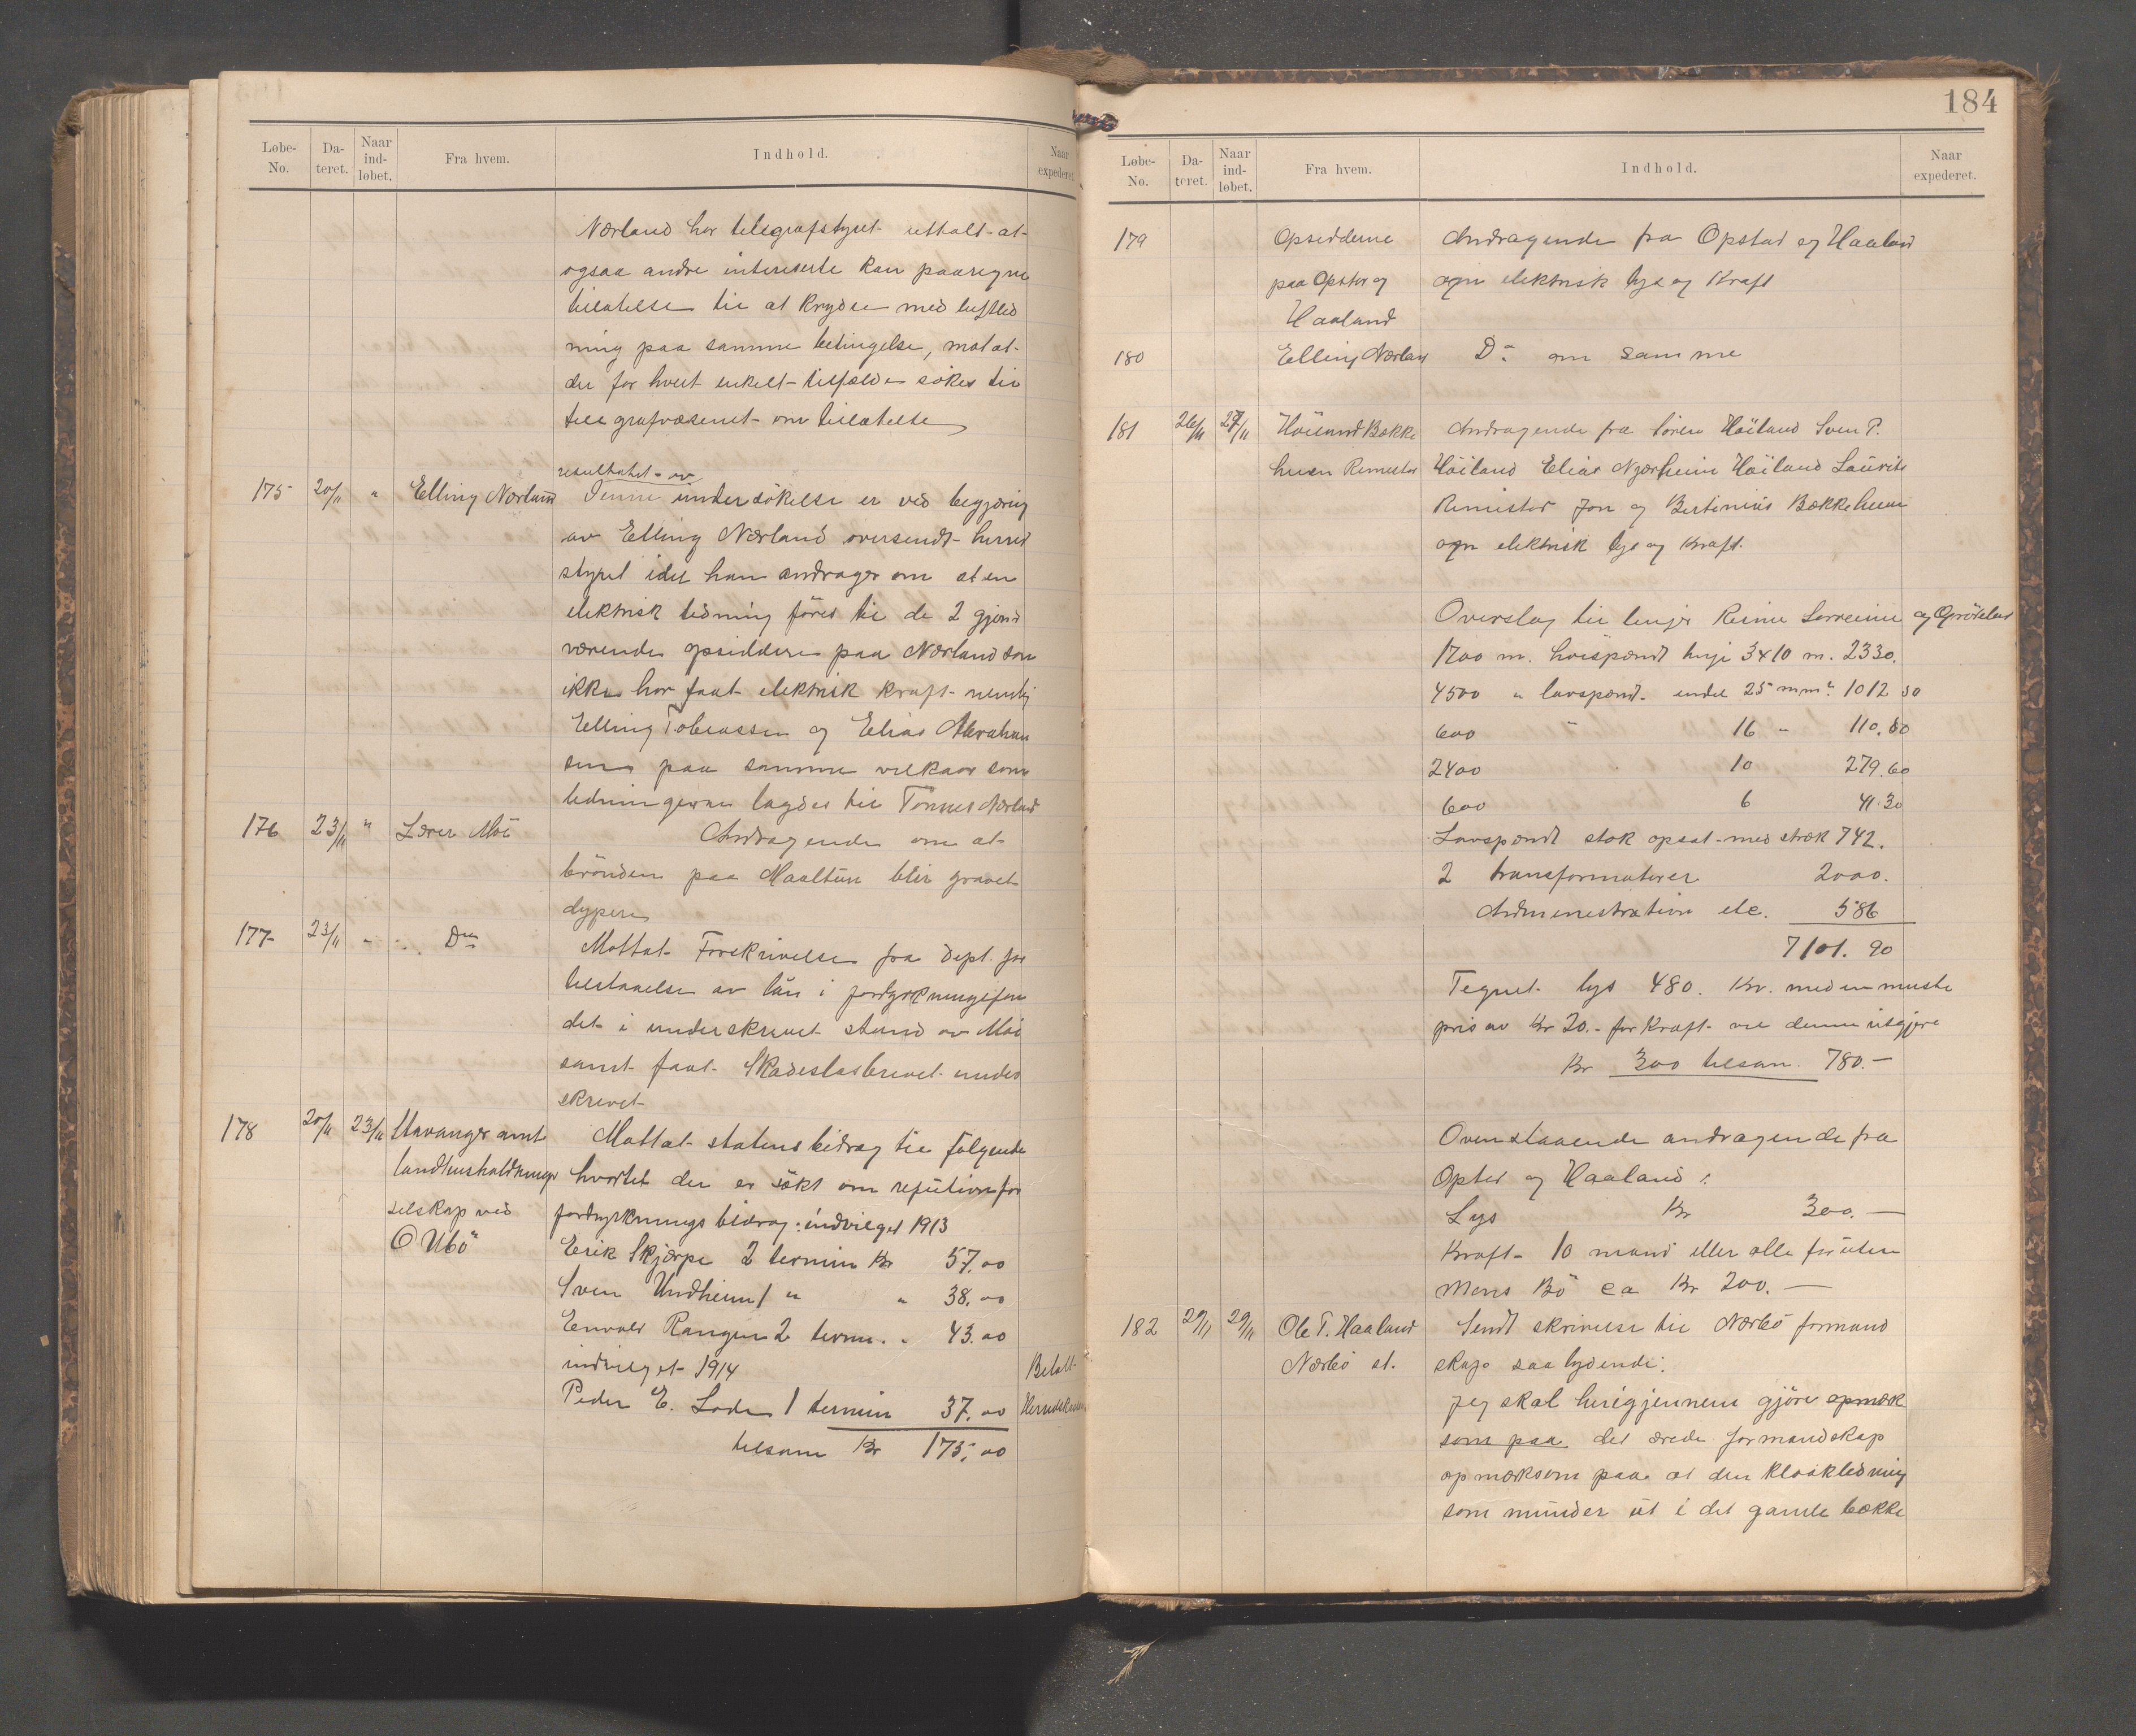 Løbe-No. Dateret. Naar indløbet. Fra hvem. Indhold. Naar expederet.
Nærland har telegrafstyret uttalt at
ogsaa andre intereserte kan paaregne
tilatelse til at krydse med luftled
ning paa samme betingelse, mot at
der for hvert enkelt tilfælde søkes til
telegrafvæsenet om tillatelse
resultatet av
175 20/11 " Elling Nærland Denne undersökelse er ved begjæring
av Elling Nærland oversendt herred
styret idet han andrager om at en
elektrisk ledning föres til de 2 gjen
værende opsiddere paa Nærland som
ikke har faat elektrisk kraft nemlig
Elling Tobiassen og Elias Abraham
sen paa samme vilkaar som
ledningerne lagdes til Tönnes Nærland
176 23/11 " Lærer Moi Andragende om at
brönden paa Maaltun blir gravet
dypere
177 23/11 " " Do Mottat Forskrivelse fra Dept. for
bestaaelse av lån i jordyrkningsfon
det i underskrevet stand av Moi
samt faat Skadeslösbrevet under
skrevet
178 20/11 23/11 Stavanger amts Mottat statens bidrag til følgende
landhusholdnings hvortil der er sökt om refusion for
selskap ved jordyrknings bidrag: indvilget 1913
O Ubö Erik Skjærpe 2 termin Kr 57.00
Sven Undheim 1 " " 38.00
Enevald Rangen 2 termin " 43.00
indvilget 1914 Betalt
Peder E. Lode 1 termin 37.00 Herredskassen
tilsam Kr 175,00
184
Løbe-No. Dateret. Naar indløbet. Fra hvem. Indhold. Naar expederet.
179 Opsidderne Andragende fra Opstad og Haaland
paa Opstad og ogn elektrisk lys og Kraft
Haaland
180 Elling Nærland Do om samme
181 26/11 27/11 Höiland Bække Andragende fra Sören Höiland Sven P.
huen Rimestad Höiland Elias Njærheim Höiland Laurits
Rimestad Jon og Bertinius Bækkehuen
ogn elektrisk lys og Kraft.
Overslag til linje Reime Sörreime og Opröstad
1700 m. höispændt linje 3x10 m. 2330.
4500 " lavspænd. under 25 mm² 1012 50
600 " 16 " 110.80
2400 10 279.60
600 6 41.30
Lavspændt stok opsat med stræk 742.
2 transformatorer 2000.
Administration etc. 586
7101. 90
Tegnet lys 480. Kr. med en minste
pris av Kr 20.- for Kraft vil denne utgjöre
Kr 300 tilsam. 780.-
Ovenstaaende andragende fra
Opsted og Haaland:
Lys Kr 300.-
Kraft 10 mand eller alle foruten
Mons Bö ca Kr 200.-
182 29/11 29/11 Ole T. Haaland Sendt skrivelse til Nærbö formand
Nærbö st. skap saa lydende:
Jeg skal herigjennem gjöre opmærk
som paa det ærede formandskap
opmerksom paa at den kloakledning
som münder ut i det gamle bække